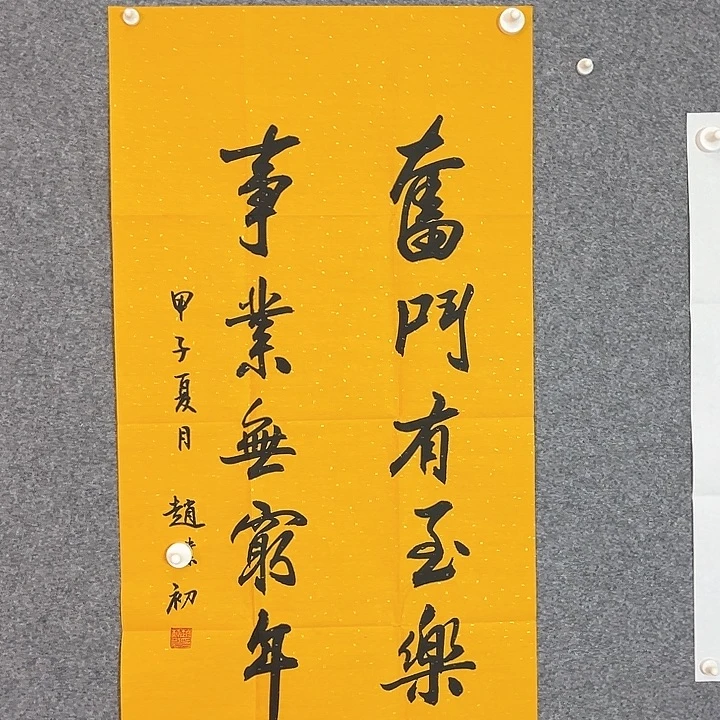 奮鬥有至樂
事業無窮年
甲子夏月 趙樸初